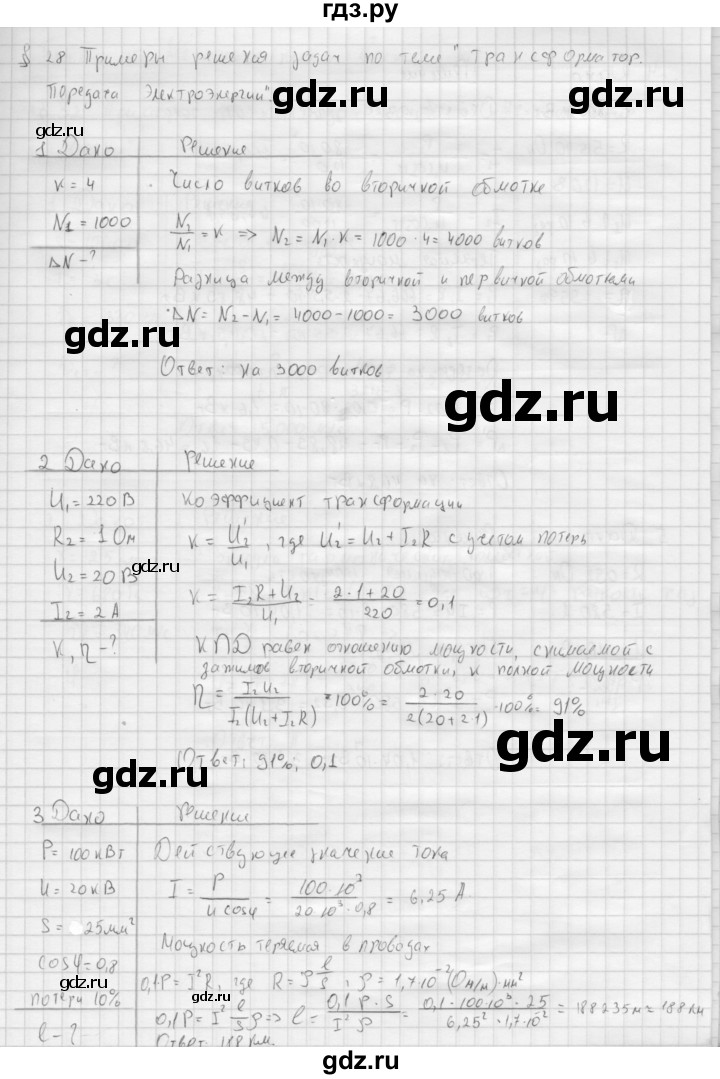 гдз.ру
§ 28 Примеры решения задач по теме "Трансформатор.
Передача электроэнергии"
gdz.ru
gdz.ru
1 Дано
Решение
K = 4
N₁ = 1000
ΔN - ?
Число витков во вторичной обмотке
N₂/N₁ = K => N₂ = N₁·K = 1000·4 = 4000 витков
Разница между вторичной и первичной обмотками
gdz.ru
ΔN = N₂ - N₁ = 4000 - 1000 = 3000 витков
Ответ: на 3000 витков
gdz.ru
2 Дано
Решение
U₁ = 220 В
R₂ = 1 Ом
U₂ = 20 В
I₂ = 2 А
K, η - ?
Коэффициент трансформации
K = U₂'/U₁, где U₂' = U₂ + I₂R с учетом потерь
gdz.ru
gdz.ru
K = (I₂R + U₂)/U₁ = (2·1 + 20)/220 = 0,1
КПД равен отношению мощности, снимаемой с
зажимов вторичной обмотки, к полной мощности
η = I₂U₂/(I₂(U₂ + I₂R)) · 100% = 2·20/(2(20 + 2·1)) · 100% = 91%
gdz.ru
Ответ: 91%; 0,1
gdz.ru
3 Дано
Решение
P = 100 кВт
U = 20 кВ
S = 25 мм²
cosφ = 0,8
потери 10%
l - ?
Действующее значение тока
I = P/(U cosφ) = 100·10³/(20·10³·0,8) = 6,25 А
gdz.ru
gdz.ru
Мощность теряемая в проводах
0,1P = I²R, где R = ρ l/S, ρ = 1,7·10⁻² (Ом/м)·мм²
0,1P = I² l/S ρ => l = 0,1 P·S/(I² ρ) = 0,1·100·10³·25/(6,25²·1,7·10⁻²) = 188235 м = 188 км
Ответ 188 км.
gdz.ru